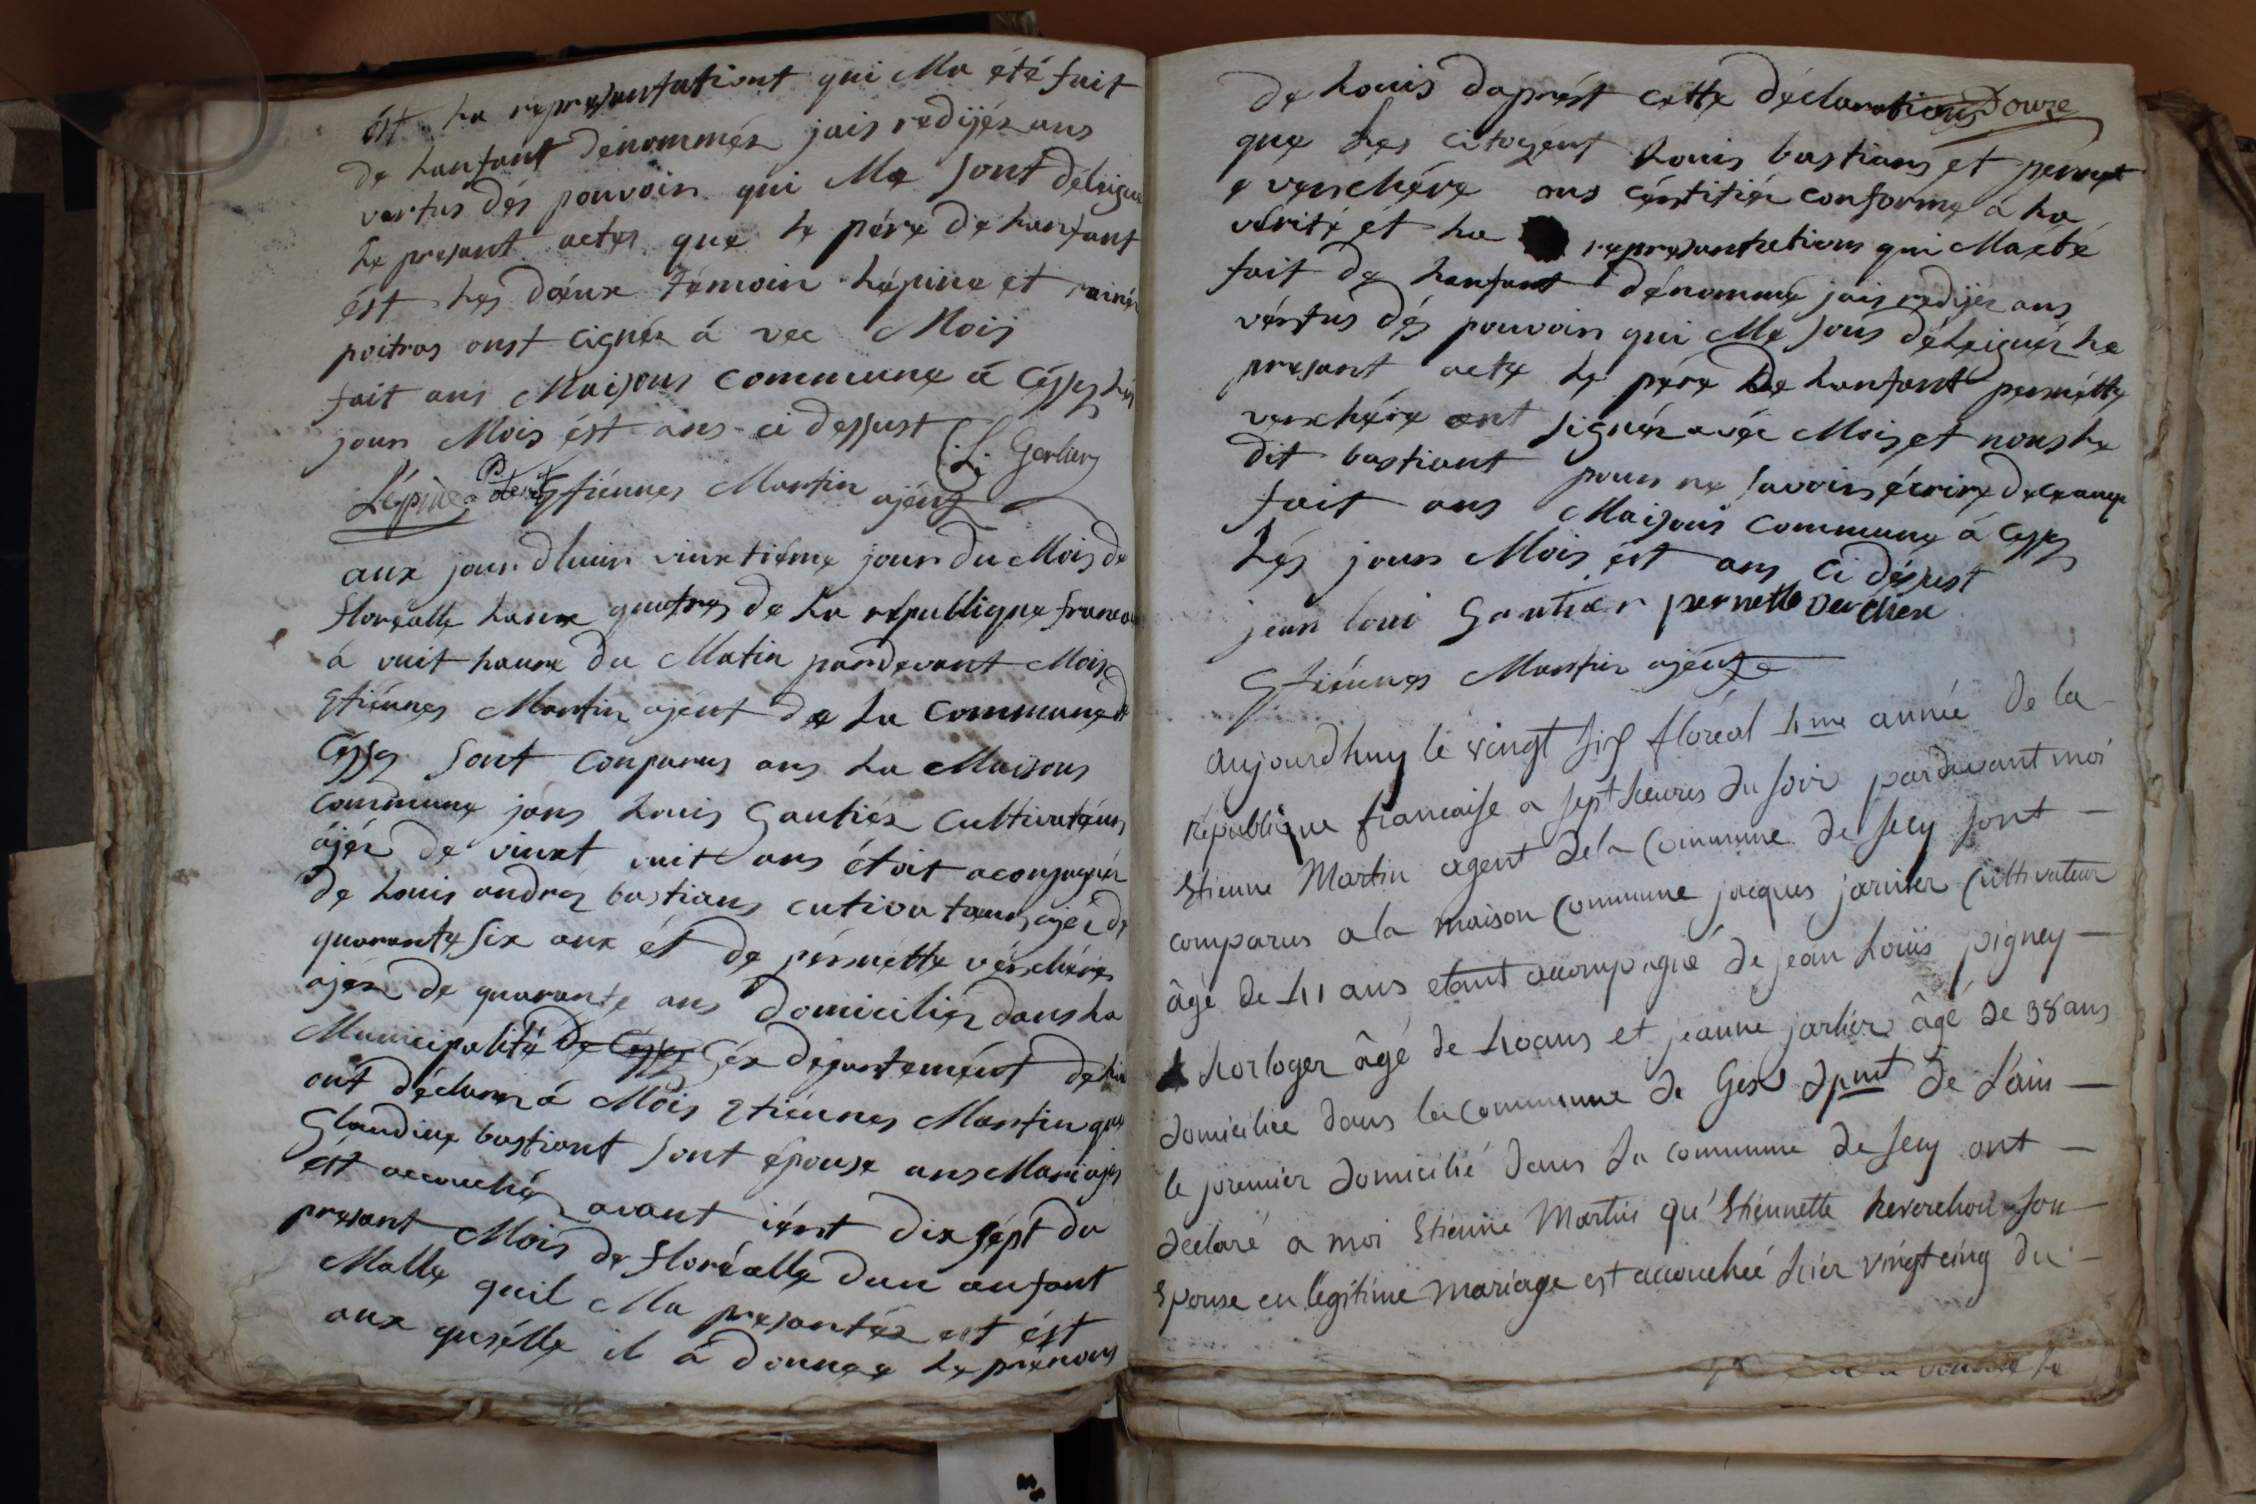 ést la represantationt qui Ma été fait
de lanfant dénommér jais redijér ans
vertus dés pouvoir qui Me sont déléigué
le presant actes que le pére de lanfant
ést les dœux témoin lépine et
poitras onst cignér á vec Mois
fait ans Maisons commune á Céssy lés
jour Mois ést ans ci dessust L. Gerlier
Lépine Etiénnes Martin ajént
aux jourdhuir vinxtiéme jour du Mois de
floréalle lanx quatres de la république francais
á vuit haure du Matin pardevant Mois
Etiénnes Martin ajént de la commune de
Céssy sont conparus ans la Maisons
commune jans Louis Gautiér cultivateur
ájér de vinxt vuit ans étoit aconpagnér
de Louis andrez bastians cutivateur ajér de
quarante six anx ét de pérnétte vérchére
ajér de quarante ans domicilier dans la
Municipalité de Céssy Géx départemént de lin
ont déclarer á Mois Etiénnes Martin que
Glaudine bastiant sont épouse ans Mariajes
ést accouchér avant iért dix sépt du
presant Mois de floréalle dun anfant
Malle quil Ma presantér et ést
aux quélle il á donnee le prénom
de Louis daprést cette déclarations
que les citoyent Louis bastians et pernet
e verchére ons céntifiér conforme á la
vérité ét la represantations qui Maété
fait de lanfant dénommé jais redijér ans
vértus dés pouvoir qui Me sons déléiguér le
presant acte le pére de lanfant pernétte
verchére ont signér avéc Mois et nons le
dit bastiant pour ne savoir écrire de ce anquis
fait ans Maisons commune á Céssy
Lés jour Mois ést ans ci désust
jean loui Gautier pernette verchere
Etiénnes Martin ajént
aujourdhuy le vingt six floréal 4me année de la
République francaise a sept heures du soir pardevant moi
Etienne Martin agent dela Commune de Secy sont
comparus a la maison Commune jacques jarnier Cultivateur
âgé de 41 ans etant accompagné de jean Louis pigney
horloger âgé de 40 ans et jeanne jarlier âgé de 38 ans
domiciliée dans la commune de Gex dpmt de Lain
le premier domicilié dans la commune de Secy ont
déclaré a moi Etienne Martin qu'Etiennette Reverchon son
Epouse en légitime mariage est accouchée hier vingt cinq du